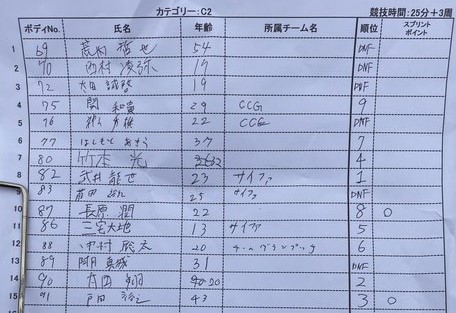 カテゴリー:C2 競技時間:25分+3周
ボディNo. 氏名 年齢 所属チーム名 順位 スプリントポイント
1 69 荒村 哲也 54 DNF
2 70 西村 凌弥 17 DNF
3 72 太田 19 DNF
4 75 関 和 29 CCG 9
5 76 22 CCG DNF
6 77 はしもと あきら 37 7
7 80 竹本 光 32 4
8 82 武井 龍世 23 サイファ 1
9 83 前田 25 サイファ DNF
10 87 長原 潤 22 8 ○
11 86 三宅大地 13 サイファ 5
12 88 中村 欣太 20 チーム グランプッチ 6
13 89 阿見 真城 31 DNF
14 90 古田 翔 20 2
15 91 戸田 43 3 ○